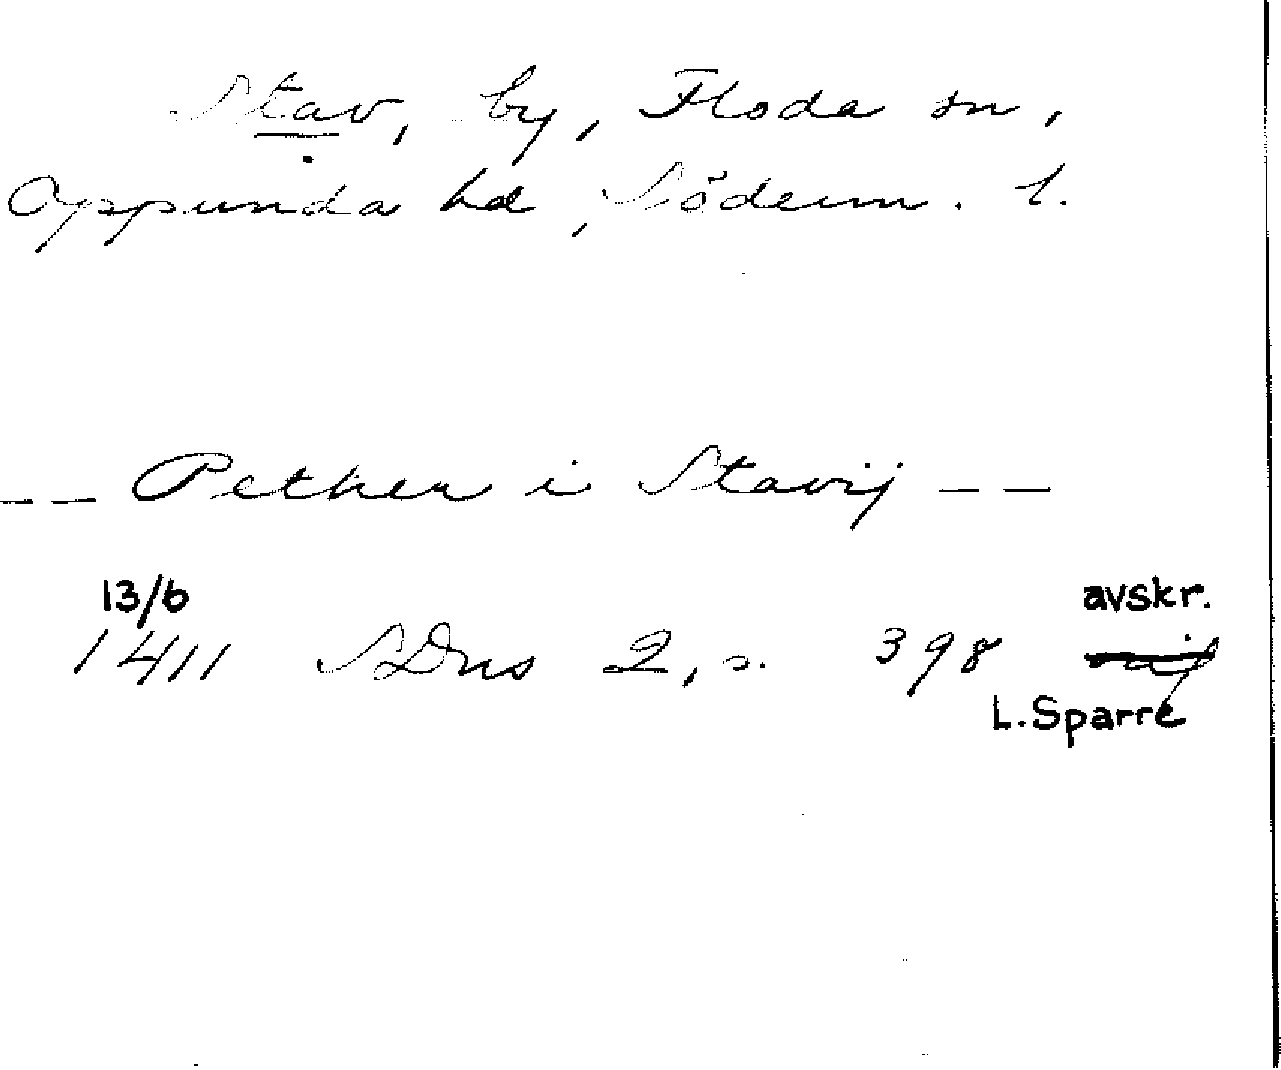 Stav, by, Floda sn,
Oppunda hd, Söderm. l.
-- Pether i Stavij --
13/6 avskr.
1411 SDns 2, s. 398
L. Sparre